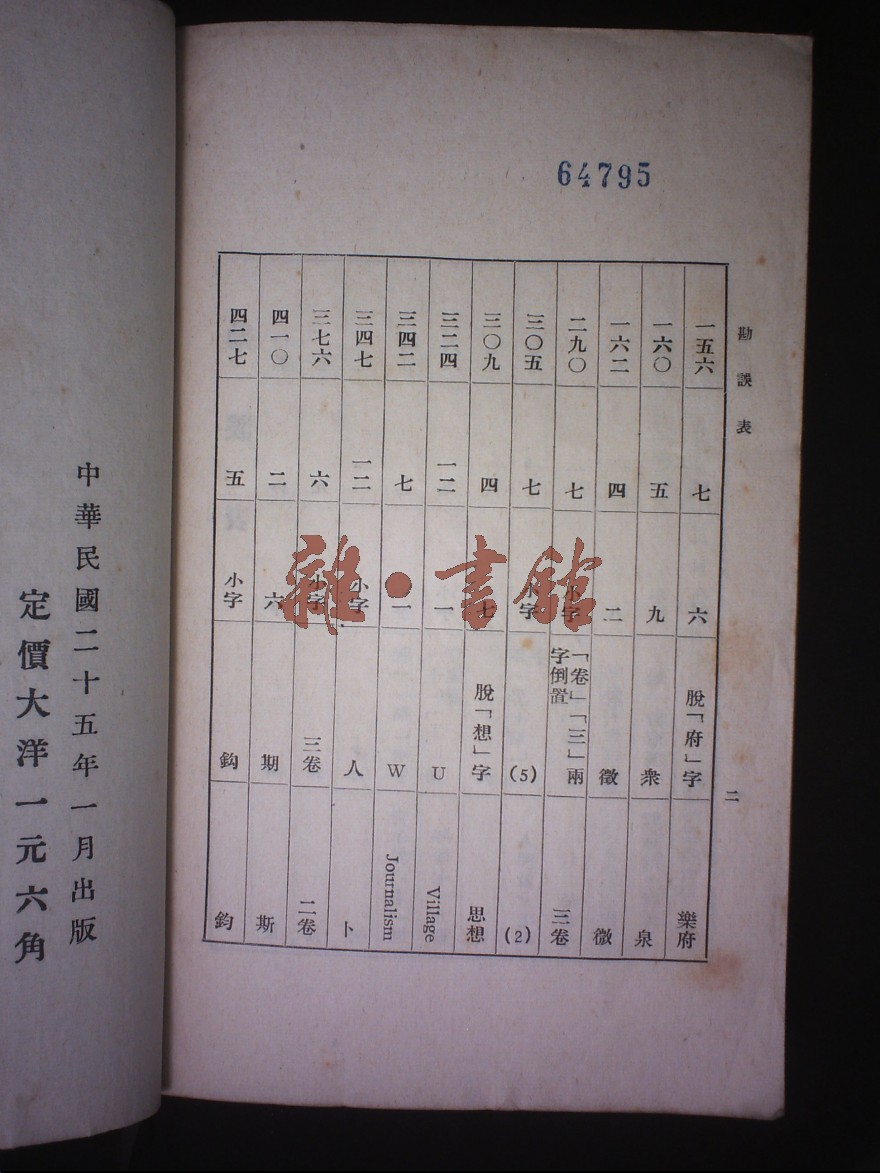 64795
勘誤表
二
一五六 七 六 脫「府」字 樂府
一六〇 五 九 衆 泉
一六二 四 二 徵 微
二九〇 七 小字 「卷」「三」兩字倒置 三卷
三〇五 七 小字 (5) (2)
三〇九 四 七 脫「想」字 思想
三二四 一二 一 U Village
三四二 七 一 W Journalism
三四七 一二 小字 人 卜
三七六 六 小字 三卷 二卷
四一〇 二 六 期 斯
四二七 五 小字 鈎 鈞
中華民國二十五年一月出版
定價大洋一元六角
雜·書館